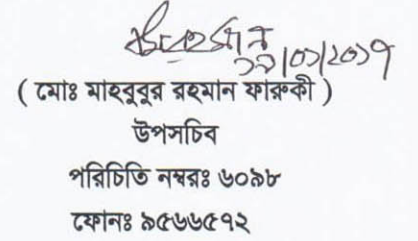 ১৯/০১/২০১৭
( মোঃ মাহবুবুর রহমান ফারুকী )
উপসচিব
পরিচিতি নম্বরঃ ৬০৯৮
ফোনঃ ৯৫৬৬৫৭২